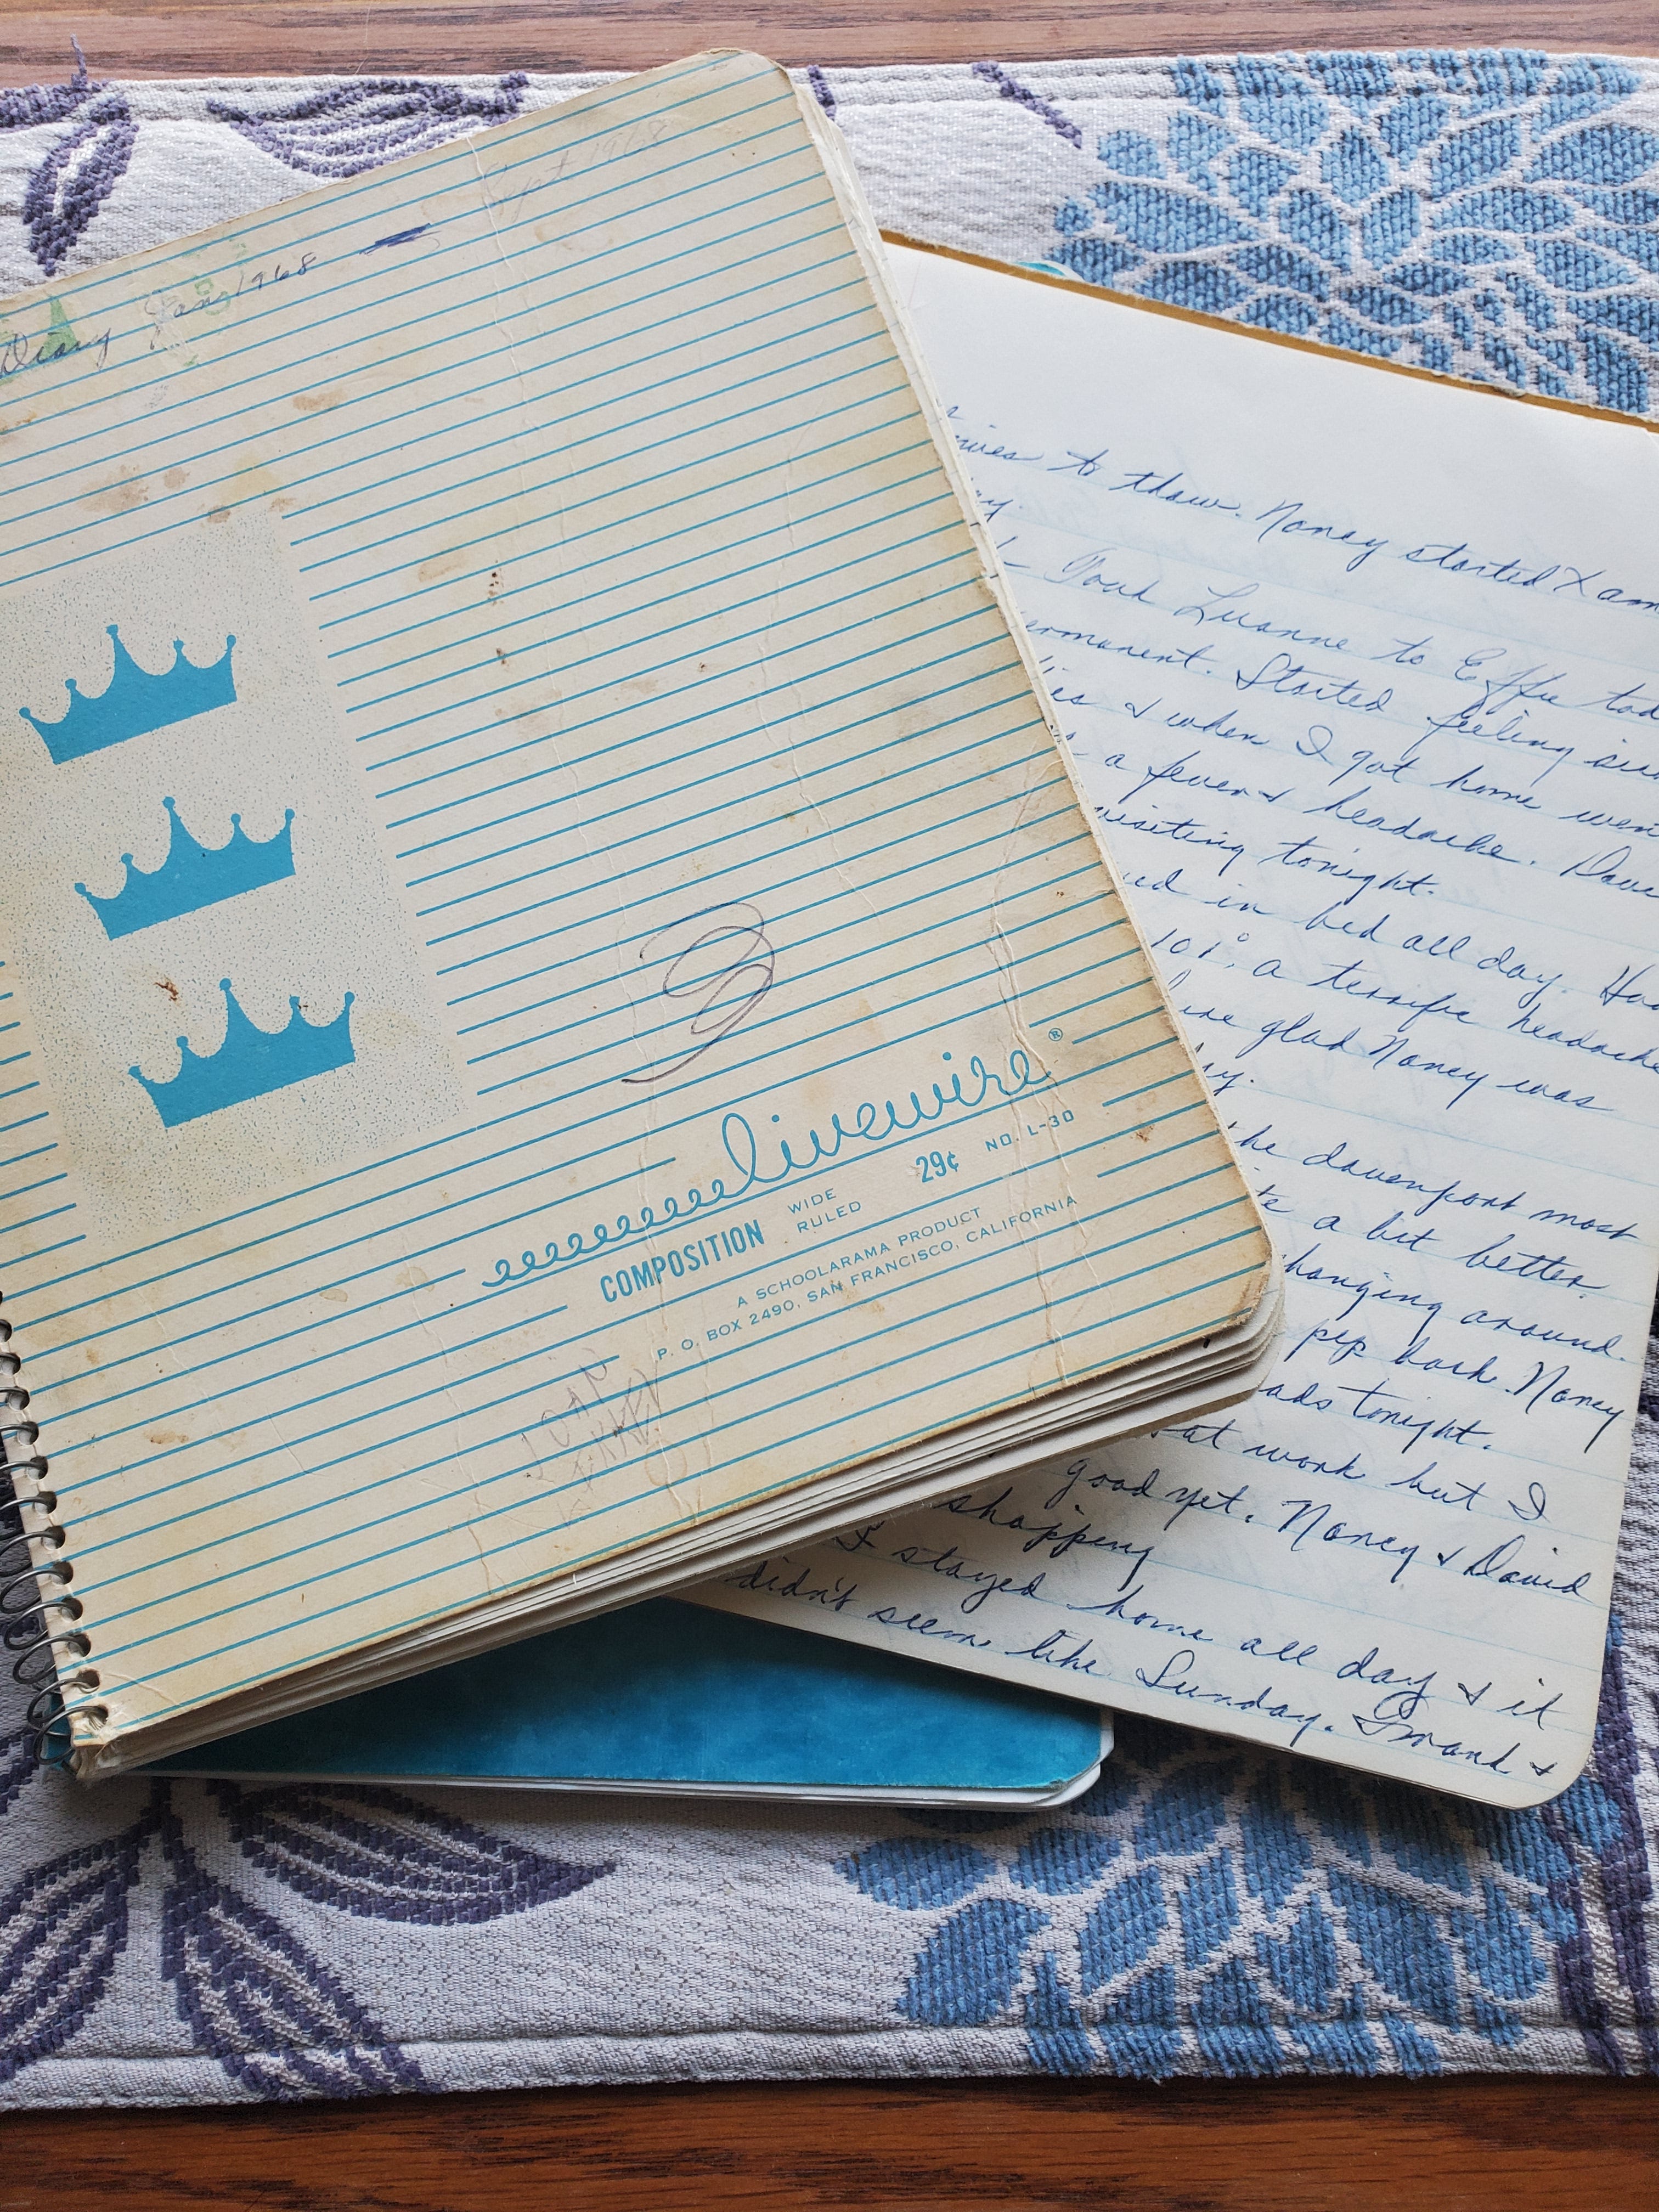 Sept 1968
Diary Jan 1968 -
livewire®
COMPOSITION
WIDE
RULED
29¢
NO. L-30
A SCHOOLARAMA PRODUCT
P. O. BOX 2490, SAN FRANCISCO, CALIFORNIA
to thaw. Nancy started
Took Luanne to Effie
Started feeling
& when I got home
a fever & headache.
visiting tonight.
in bed all day.
101°, a terrific headache
glad Nancy was
the davenport most
a bit better.
hanging around.
pep back. Nancy
tonight.
at work but I
good yet. Nancy & David
shopping
I stayed home all day & it
didn't seem like Sunday. &